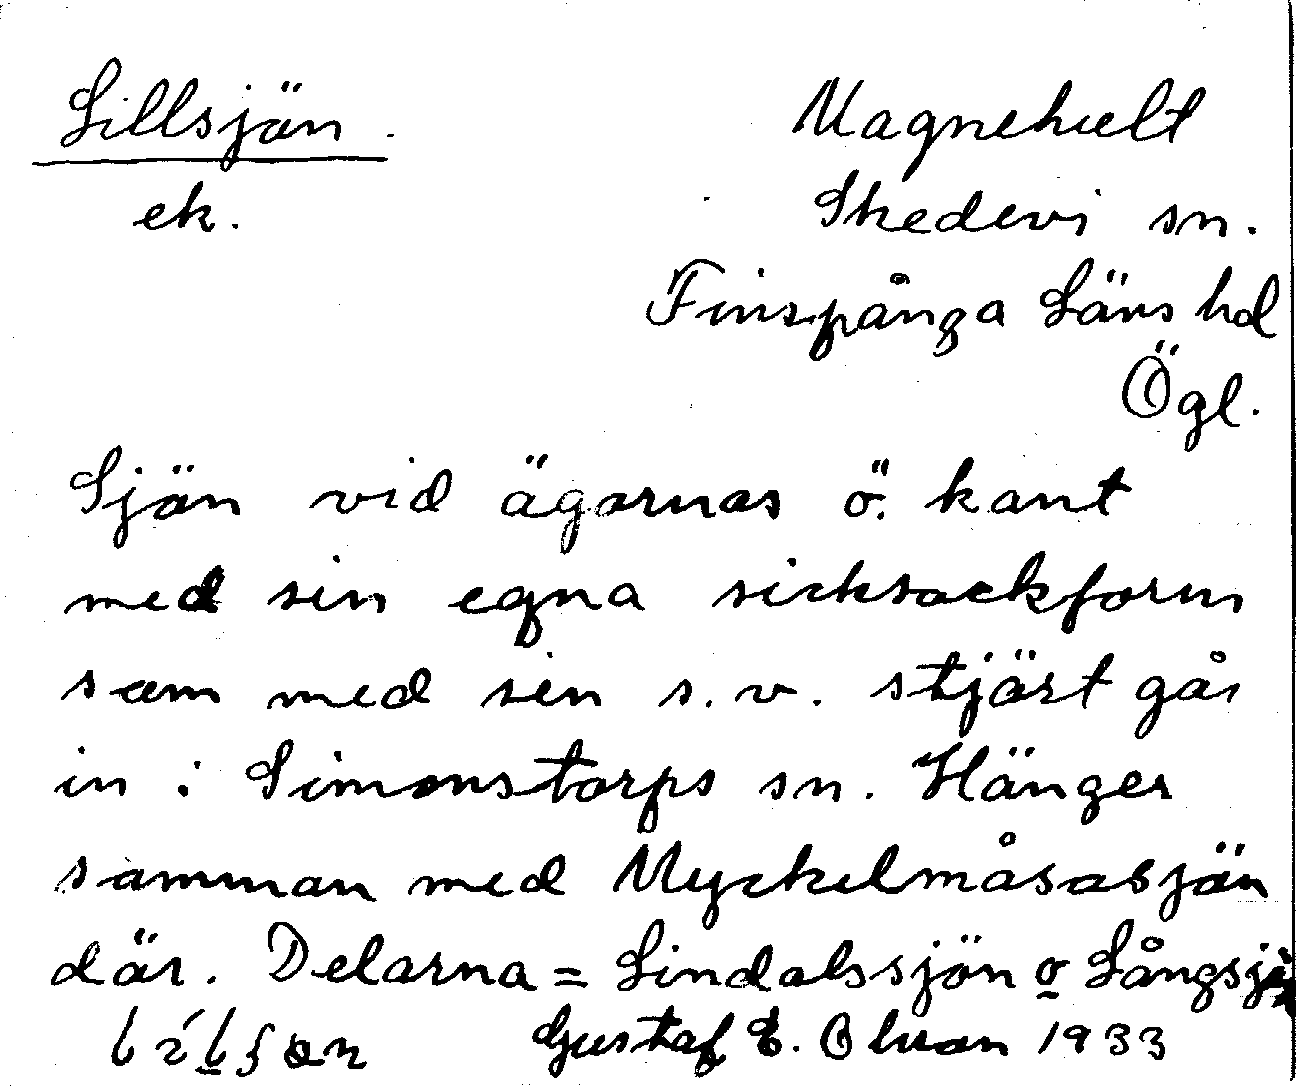 Lillsjön.
Magnehult
ek.
Skedevi sn.
Finspånga Läns hd
Ögl.
Sjön vid ägornas ö. kant
med sin egna sicksackform
som med sin s.v. stjärt går
in i Simonstorps sn. Hänger
samman med Myckelmåsasjön
där. Delarna = Lindalssjön o Långsjön
Gustaf E. Olson 1933